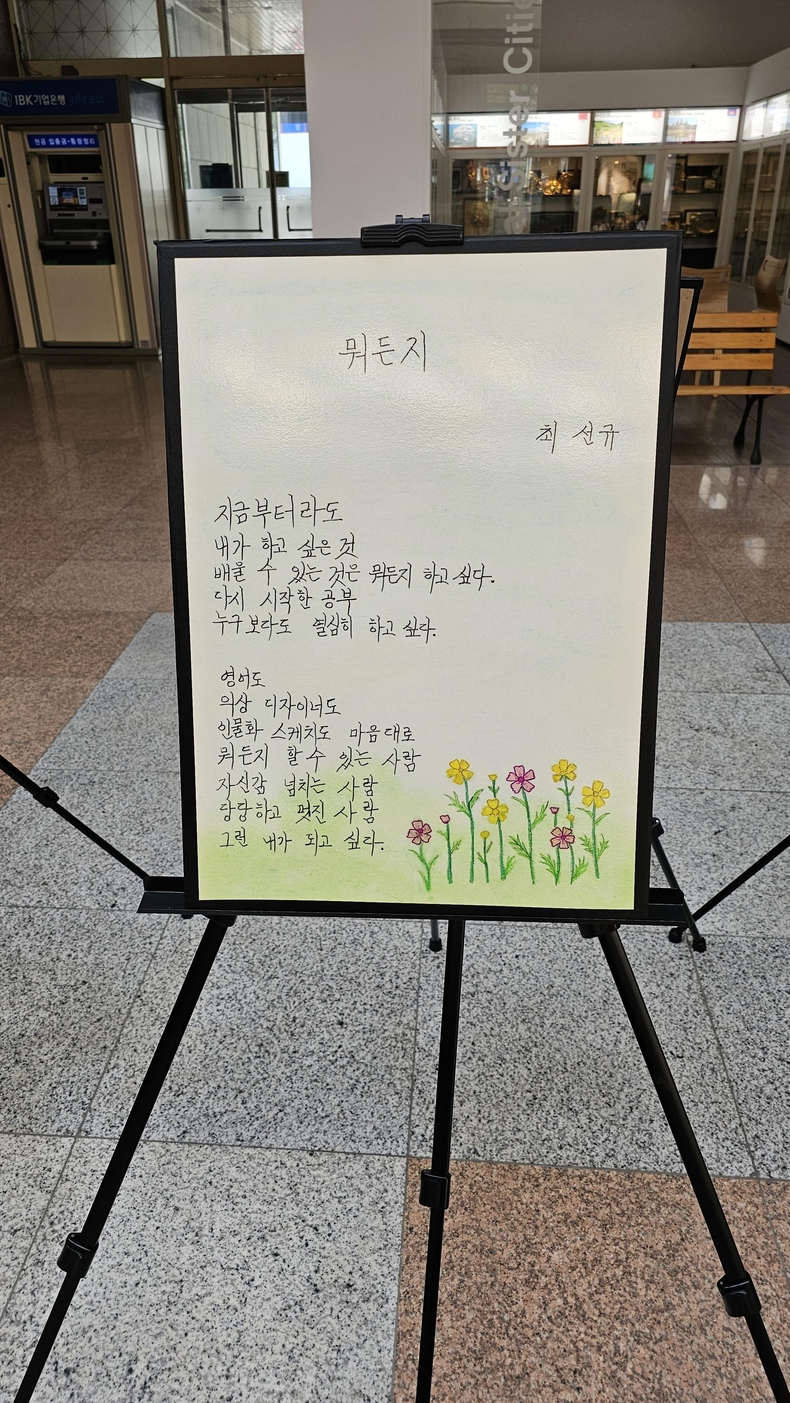 IBK기업은행 365코너
현금 입출금·통장정리
Sister Citie
뭐든지
최 선규
지금부터라도
내가 하고 싶은 것
배울 수 있는 것은 뭐든지 하고 싶다.
다시 시작한 공부
누구보다도 열심히 하고 싶다.
영어도
의상 디자이너도
인물화 스케치도 마음대로
뭐든지 할 수 있는 사람
자신감 넘치는 사람
당당하고 멋진 사람
그런 내가 되고 싶다.